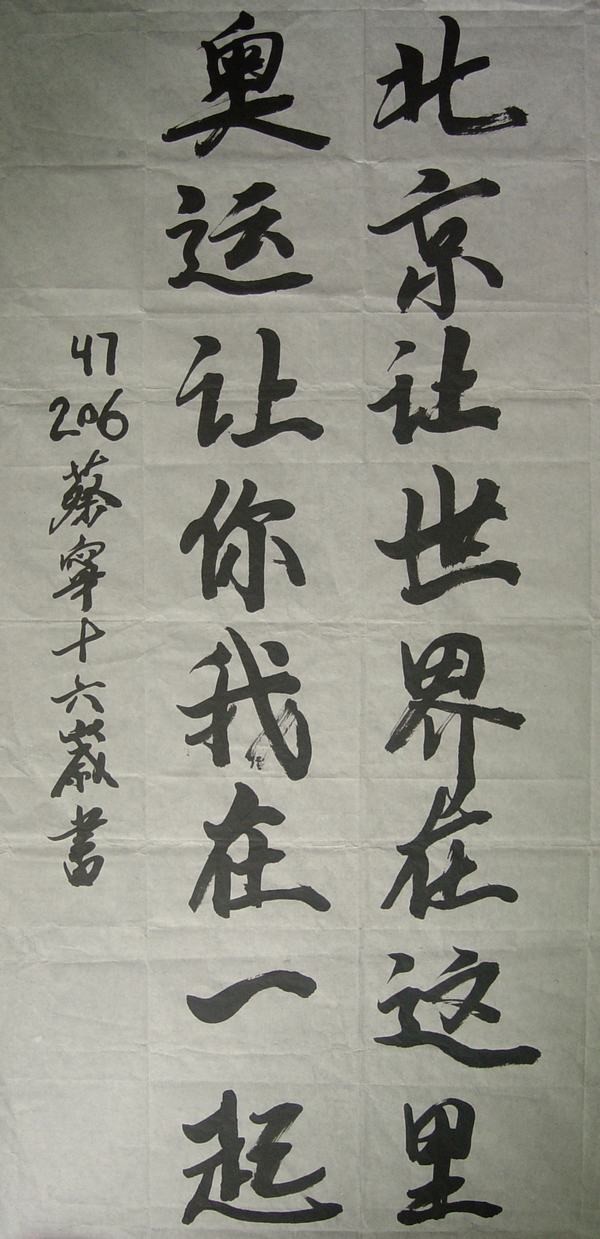 北京让世界在这里
奥运让你我在一起
47
206
蔡宁十六岁书